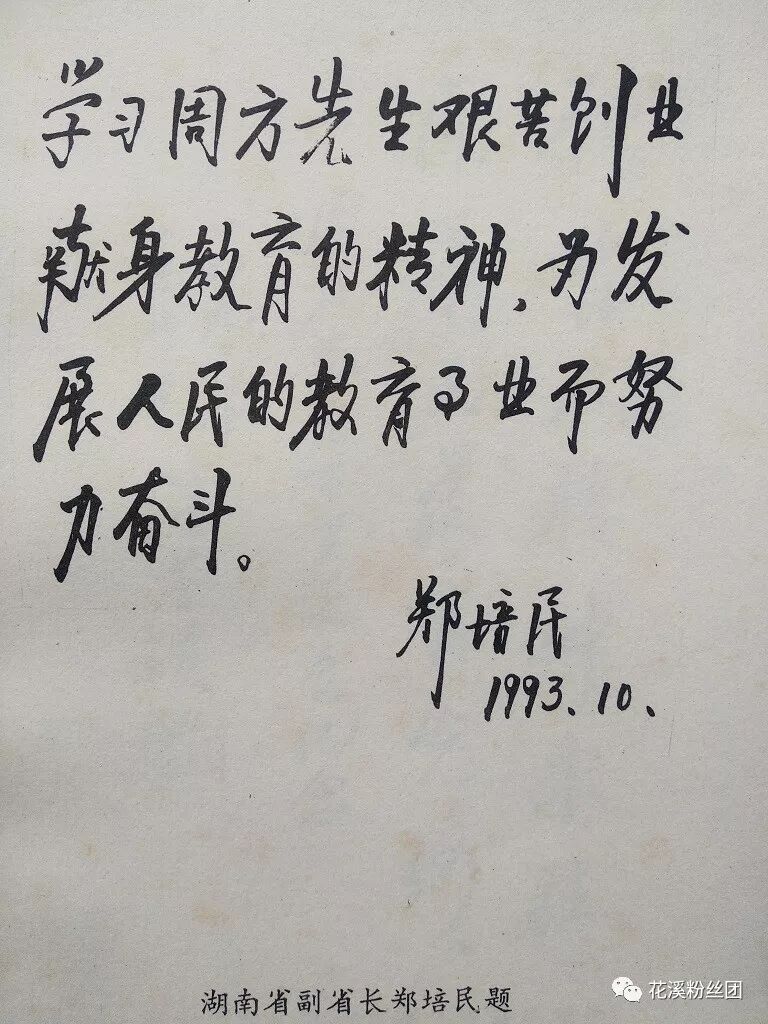 学习周方先生艰苦创业
献身教育的精神、为发
展人民的教育事业而努
力奋斗。
郑培民
1993.10.
湖南省副省长郑培民题
花溪粉丝团